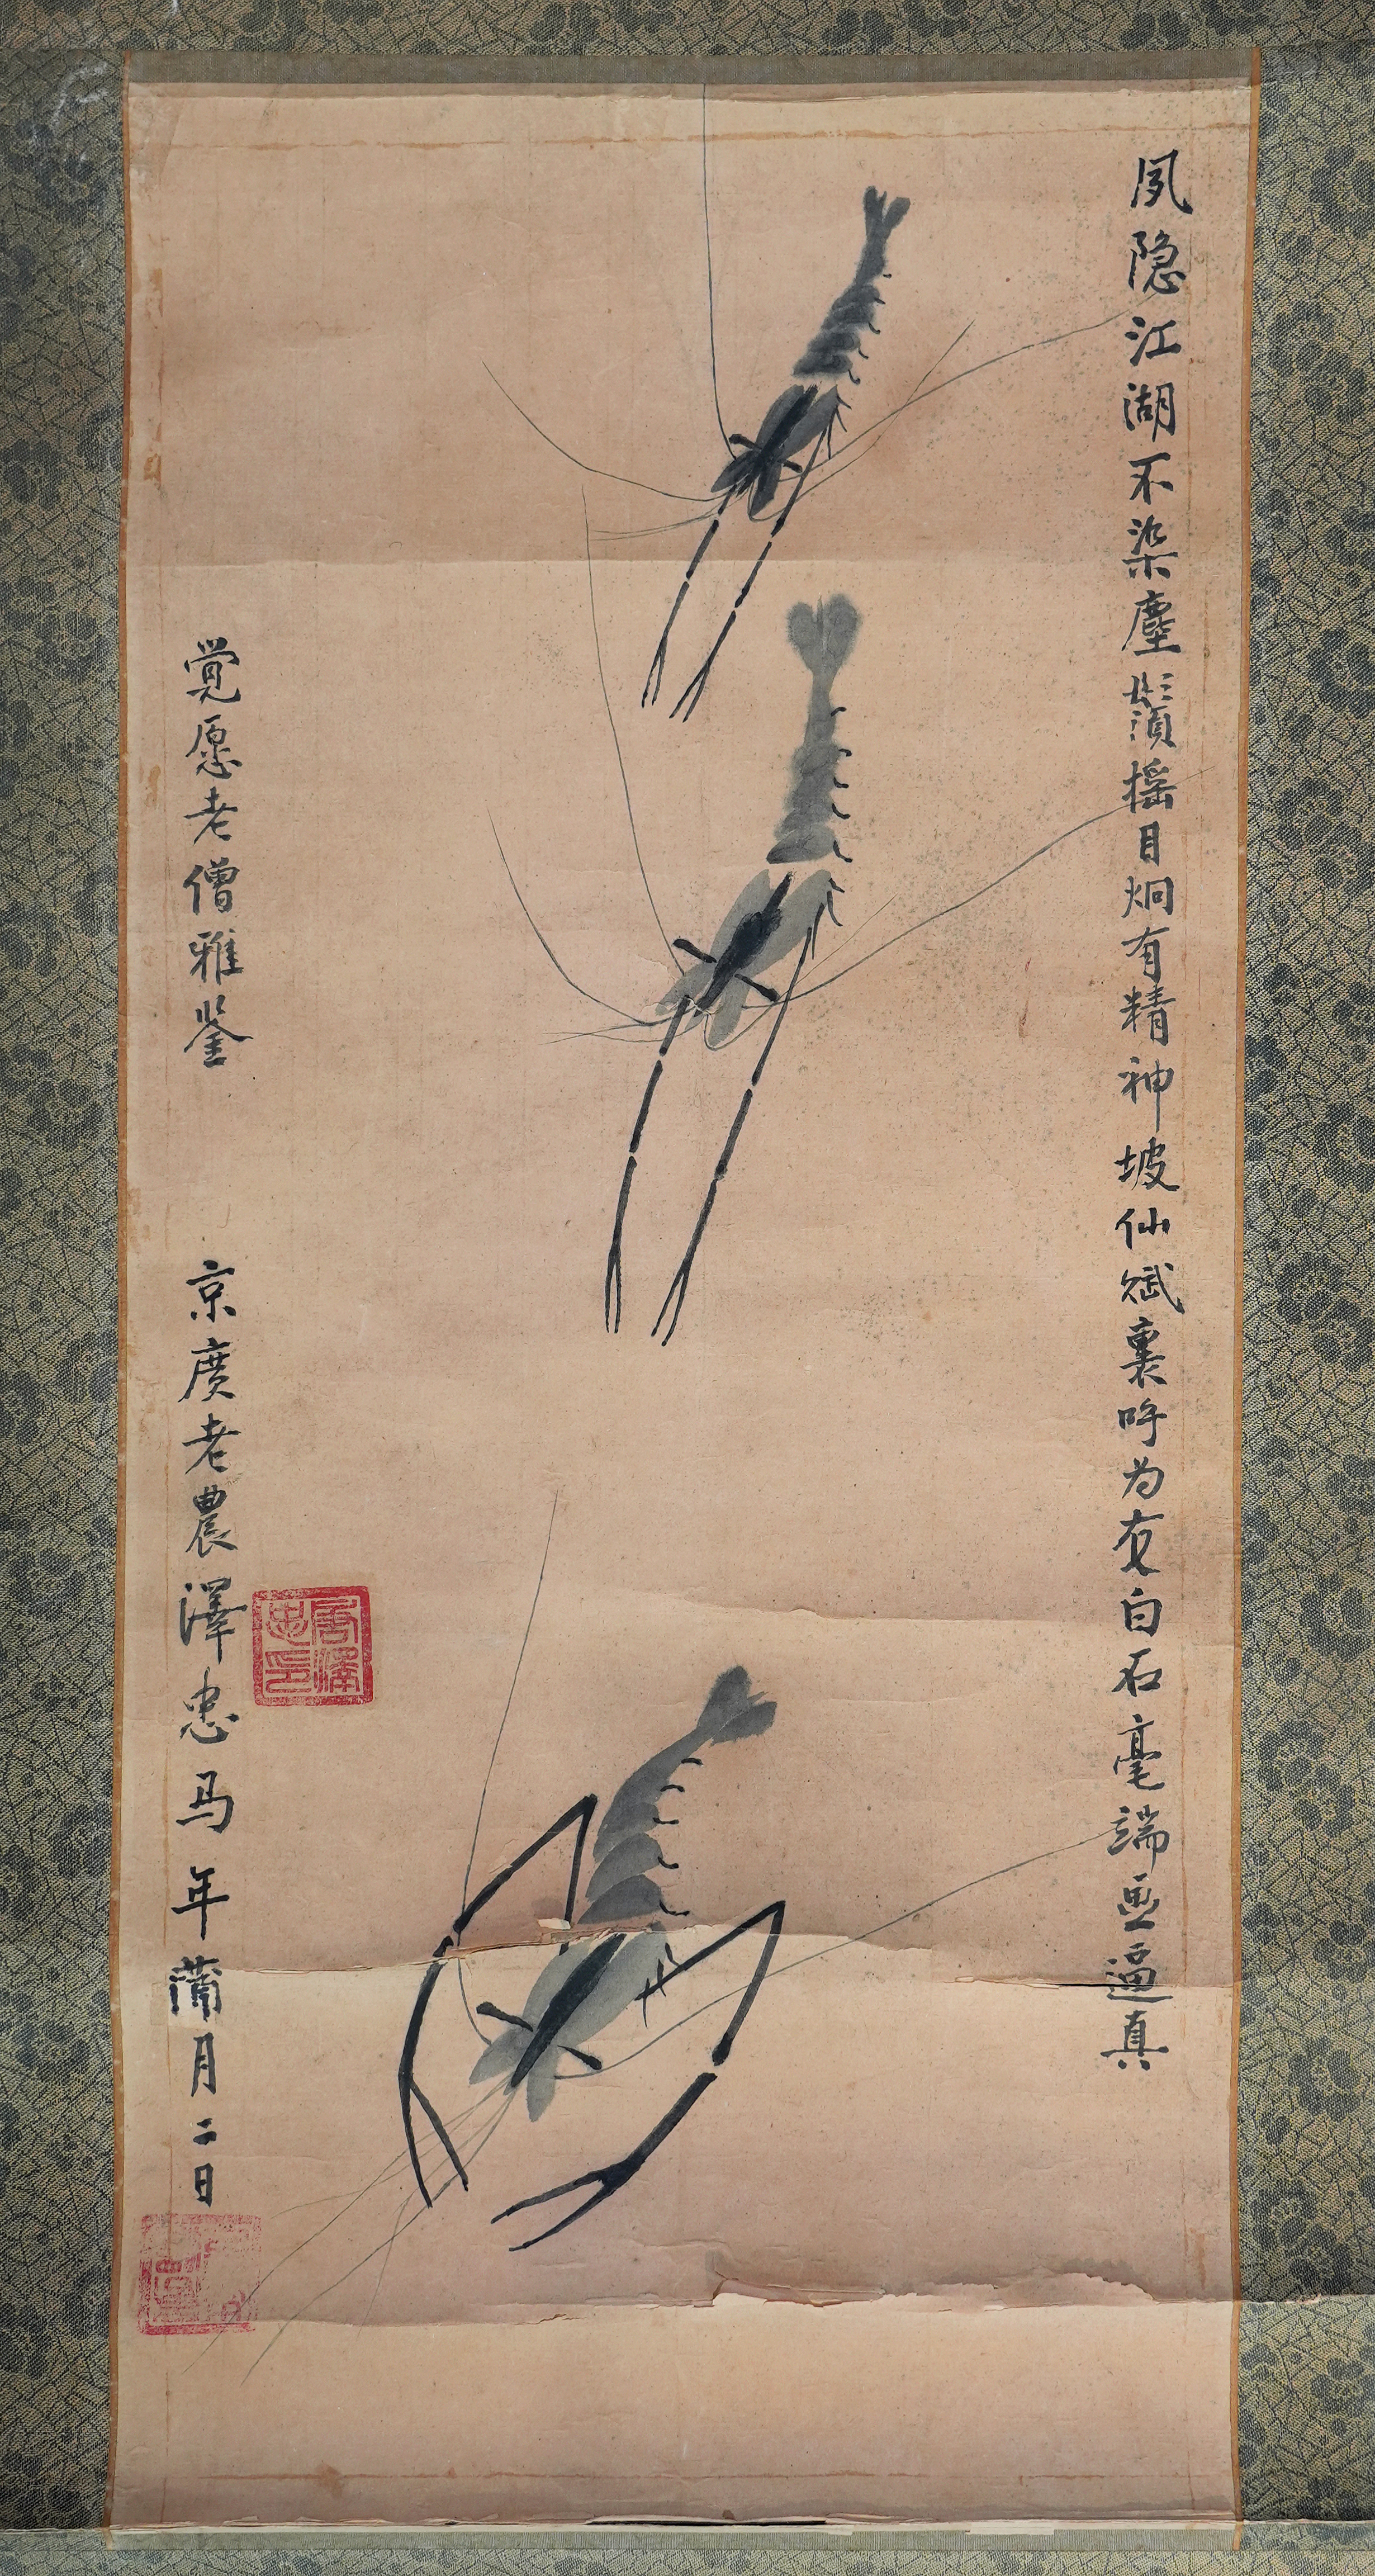 夙隐江湖不染塵鬚摇目炯有精神坡仙赋裏呼为友白石毫端画逼真
覚愿老僧雅鉴
京廣老農澤忠马年蒲月二日